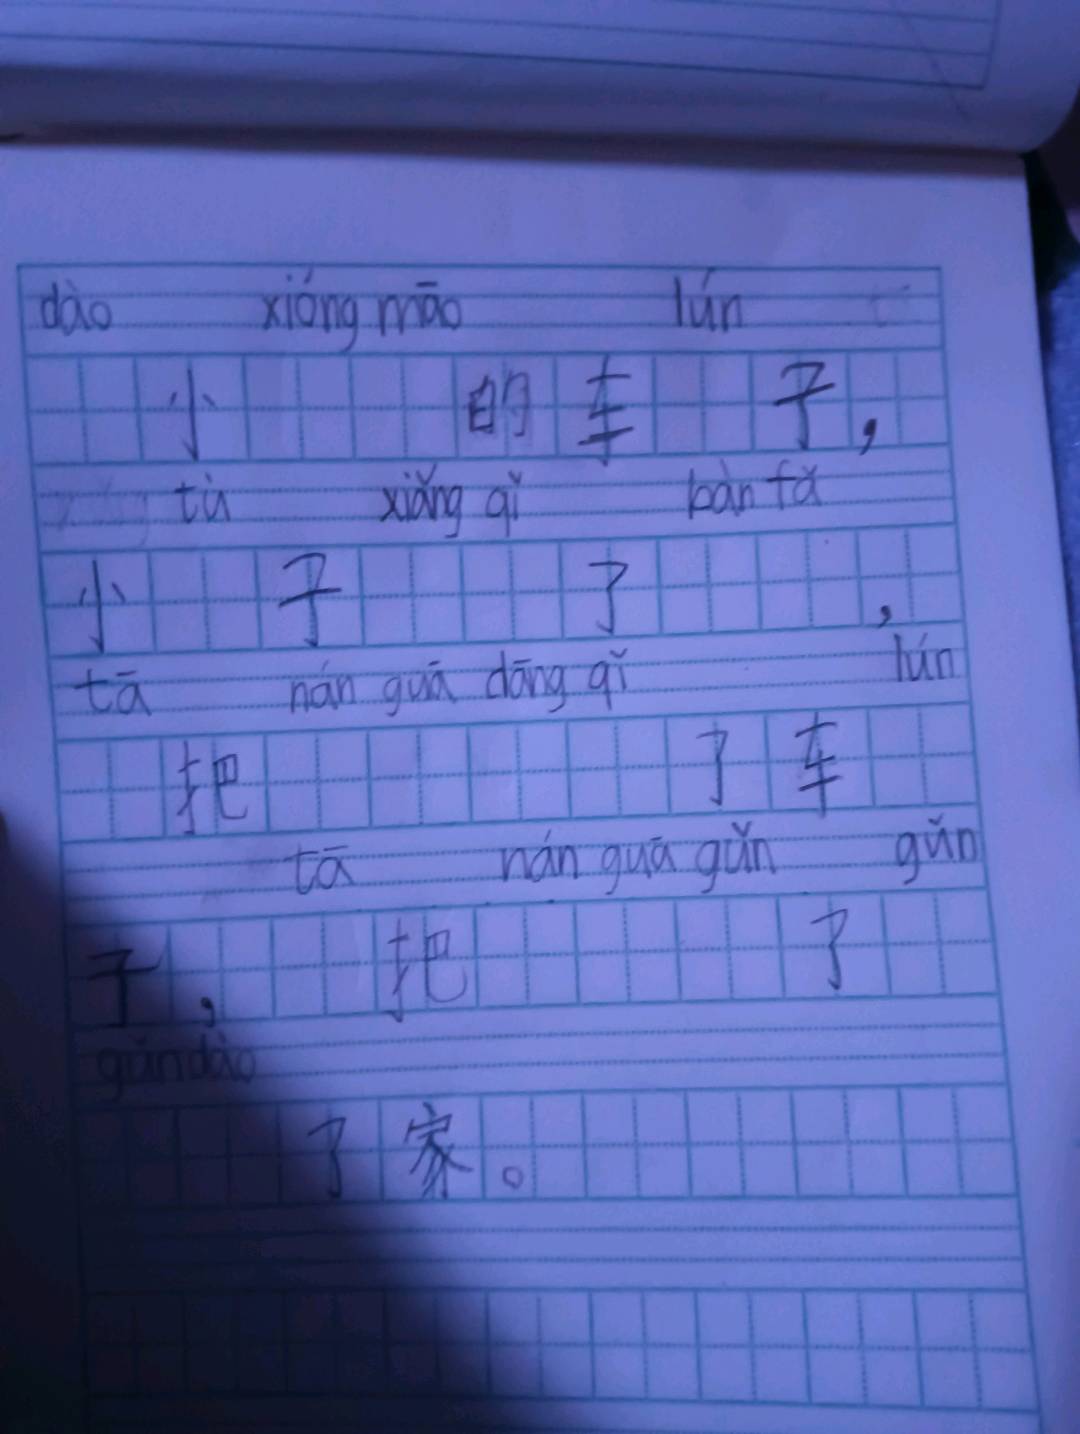 dào xióng māo lún
小 的 车 子，
tù xiǎng qǐ bàn fǎ
小 子 了 ，
tā nán guā dāng qǐ lún
把 了 车
tā nán guā gǔn gǔn
子， 把 了
gǔn dào
了 家 。